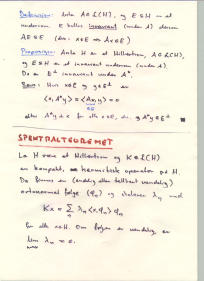 Definisjon: Anta A ∈ L(H), og E ⊆ H et
underrom. E kalles invariant (under A) dersom
AE ⊆ E (dvs. x∈E ⇒ Ax∈E)
Proposisjon: Anta H er et Hilbertrom, A∈L(H),
og E ⊆ H et invariant underrom (under A).
Da er E⊥ invariant under A*.
Bevis: Hvis x∈E og y∈E⊥ er
⟨x, A*y⟩ = ⟨Ax, y⟩ = 0
∈E
A*y ⊥ x for alle x∈E, dvs. A*y∈E⊥
SPEKTRALTEOREMET
La H være et Hilbertrom og K∈L(H)
en kompakt, hermitesk operator på H.
Da finnes en (endelig eller tellbart uendelig)
ortonormal følge (φn) og skalarer λn med
Kx = Σ λn ⟨x, φn⟩ φn
n
for alle x∈H. Om følgen er uendelig, er
lim λn = 0.
n→∞